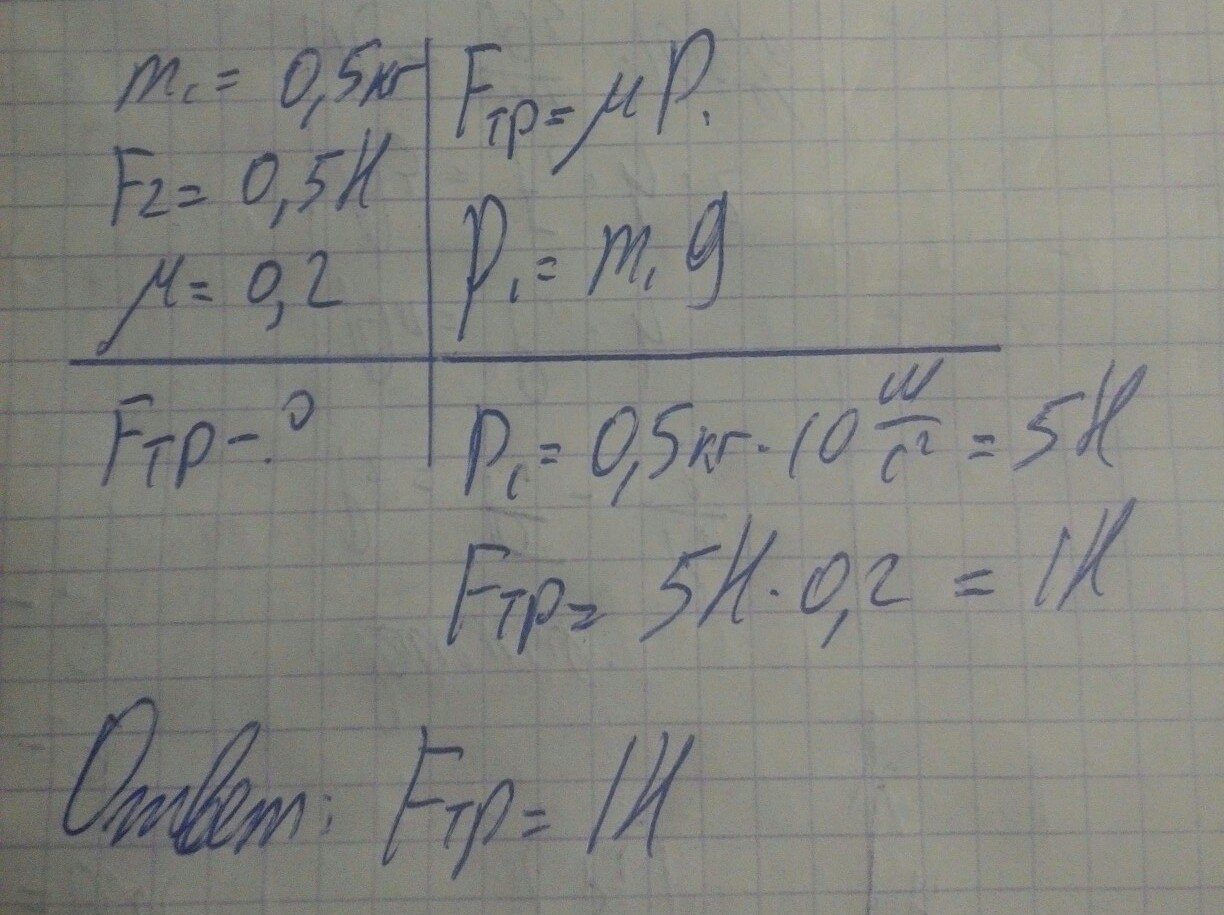 m₁ = 0,5кг
F₂ = 0,5Н
μ = 0,2
Fтр - ?
Fтр = μP₁
P₁ = m₁g
P₁ = 0,5кг · 10 м/с² = 5Н
Fтр = 5Н · 0,2 = 1Н
Ответ: Fтр = 1Н